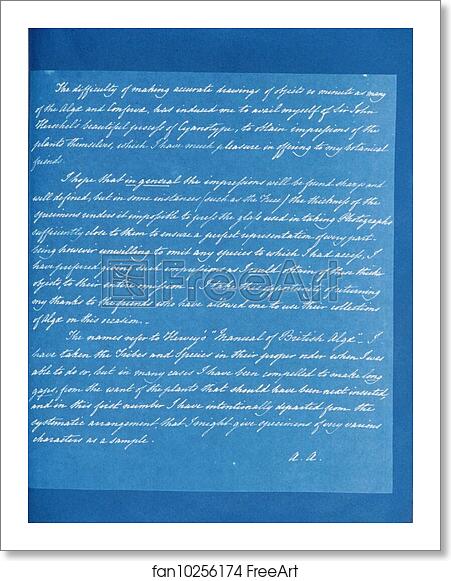 The difficulty of making accurate drawings of objects so minute as many
of the Algæ and Confervæ, has induced me to avail myself of Sir John
Herschel's beautiful process of Cyanotype, to obtain impressions of the
plants themselves, which I have much pleasure in offering to my botanical
friends.
I hope that in general the impressions will be found sharp and
well defined, but in some instances (such as the Fuci) the thickness of the
specimens renders it impossible to press the glass used in taking Photographs
sufficiently close to them to ensure a perfect representation of every part.
Being however unwilling to omit any species to which I had access, I
have preferred giving such impressions as I could obtain of these thick
objects, to their entire omission. I take this opportunity of returning
my thanks to the friends who have allowed me to use their collections
of Algæ on this occasion.
The names refer to Harvey's "Manual of British Algæ". I
have taken the Tribes and Species in their proper order when I was
able to do so, but in many cases I have been compelled to make long
gaps, from the want of the plants that should have been next inserted,
and in this first number I have intentionally departed from the
systematic arrangement that I might give specimens of very various
characters as a sample.
A. A.
FreeArt
fan10256174 FreeArt